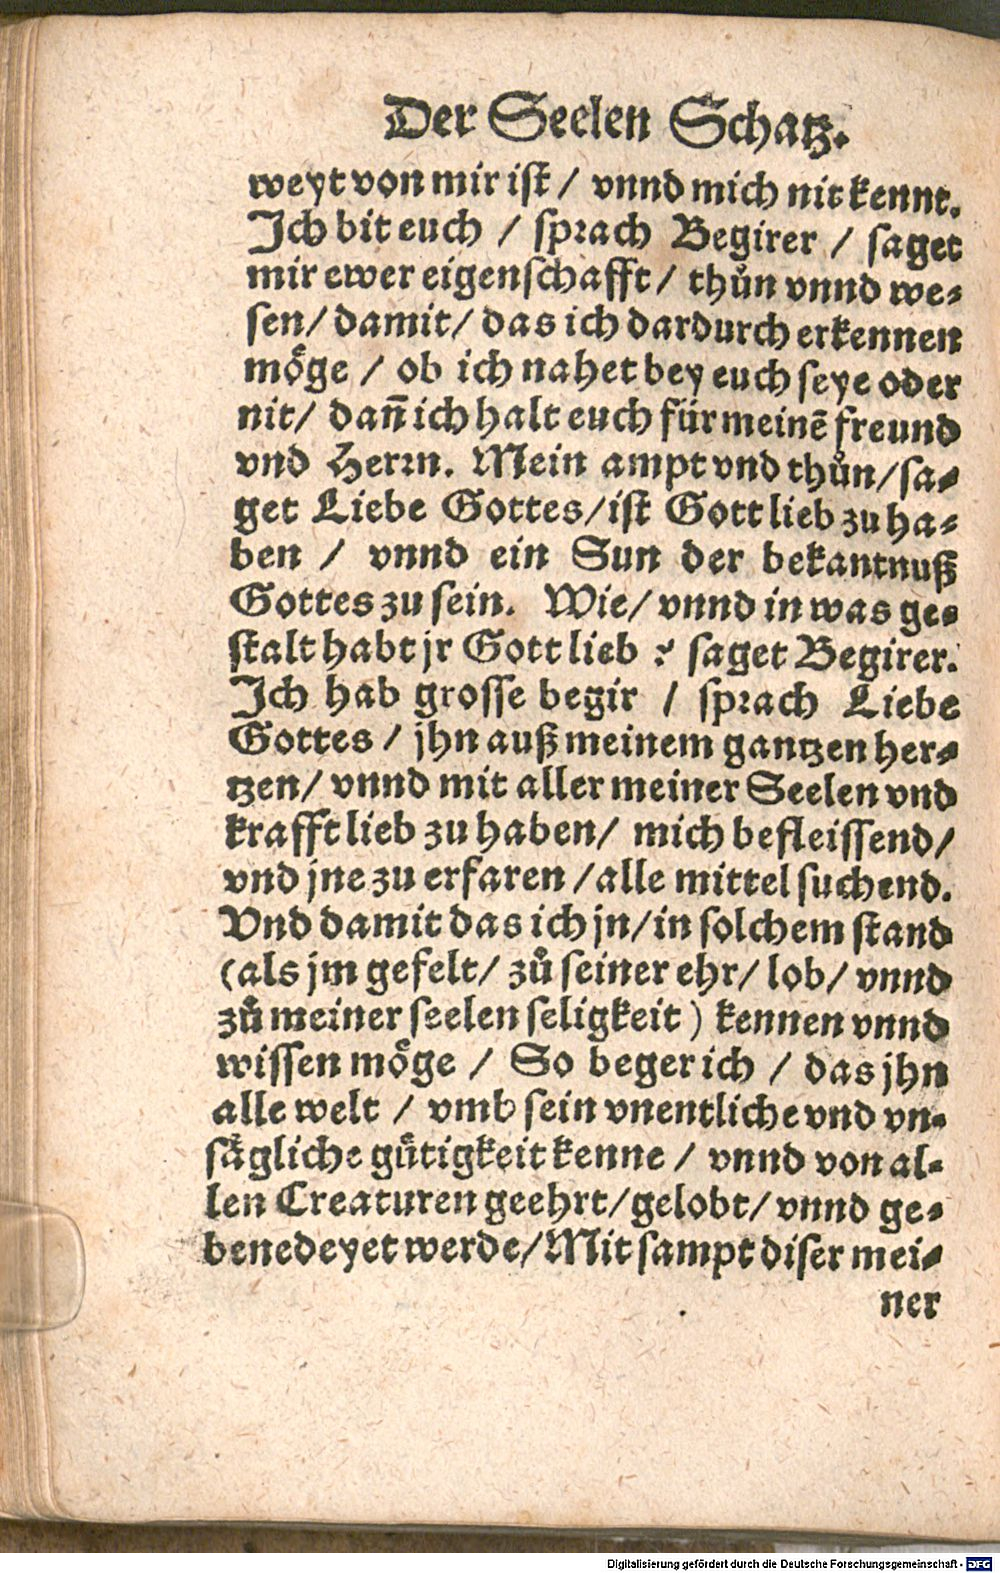 Der Seelen Schatz.
weyt von mir ist / vnnd mich nit kennt.
Ich bit euch / sprach Begirer / saget
mir ewer eigenschafft / thůn vnnd we-
sen / damit / das ich dardurch erkennen
möge / ob ich nahet bey euch seye oder
nit / dañ ich halt euch für meinẽ freund
vnd Herrn. Mein ampt vnd thůn / sa-
get Liebe Gottes / ist Gott lieb zu ha-
ben / vnnd ein Sun der bekantnuß
Gottes zu sein. Wie / vnnd in was ge-
stalt habt jr Gott lieb ? saget Begirer.
Ich hab grosse begir / sprach Liebe
Gottes / jhn auß meinem gantzen her-
tzen / vnnd mit aller meiner Seelen vnd
krafft lieb zu haben / mich befleissend /
vnd jne zu erfaren / alle mittel suchend.
Vnd damit das ich jn / in solchem stand
(als jm gefelt / zů seiner ehr / lob / vnnd
zů meiner seelen seligkeit) kennen vnnd
wissen möge / So beger ich / das jhn
alle welt / vmb sein vnentliche vnd vn-
sägliche gütigkeit kenne / vnnd von al-
len Creaturen geehrt / gelobt / vnnd ge-
benedeyet werde / Mit sampt diser mei-
ner
Digitalisierung gefördert durch die Deutsche Forschungsgemeinschaft - DFG